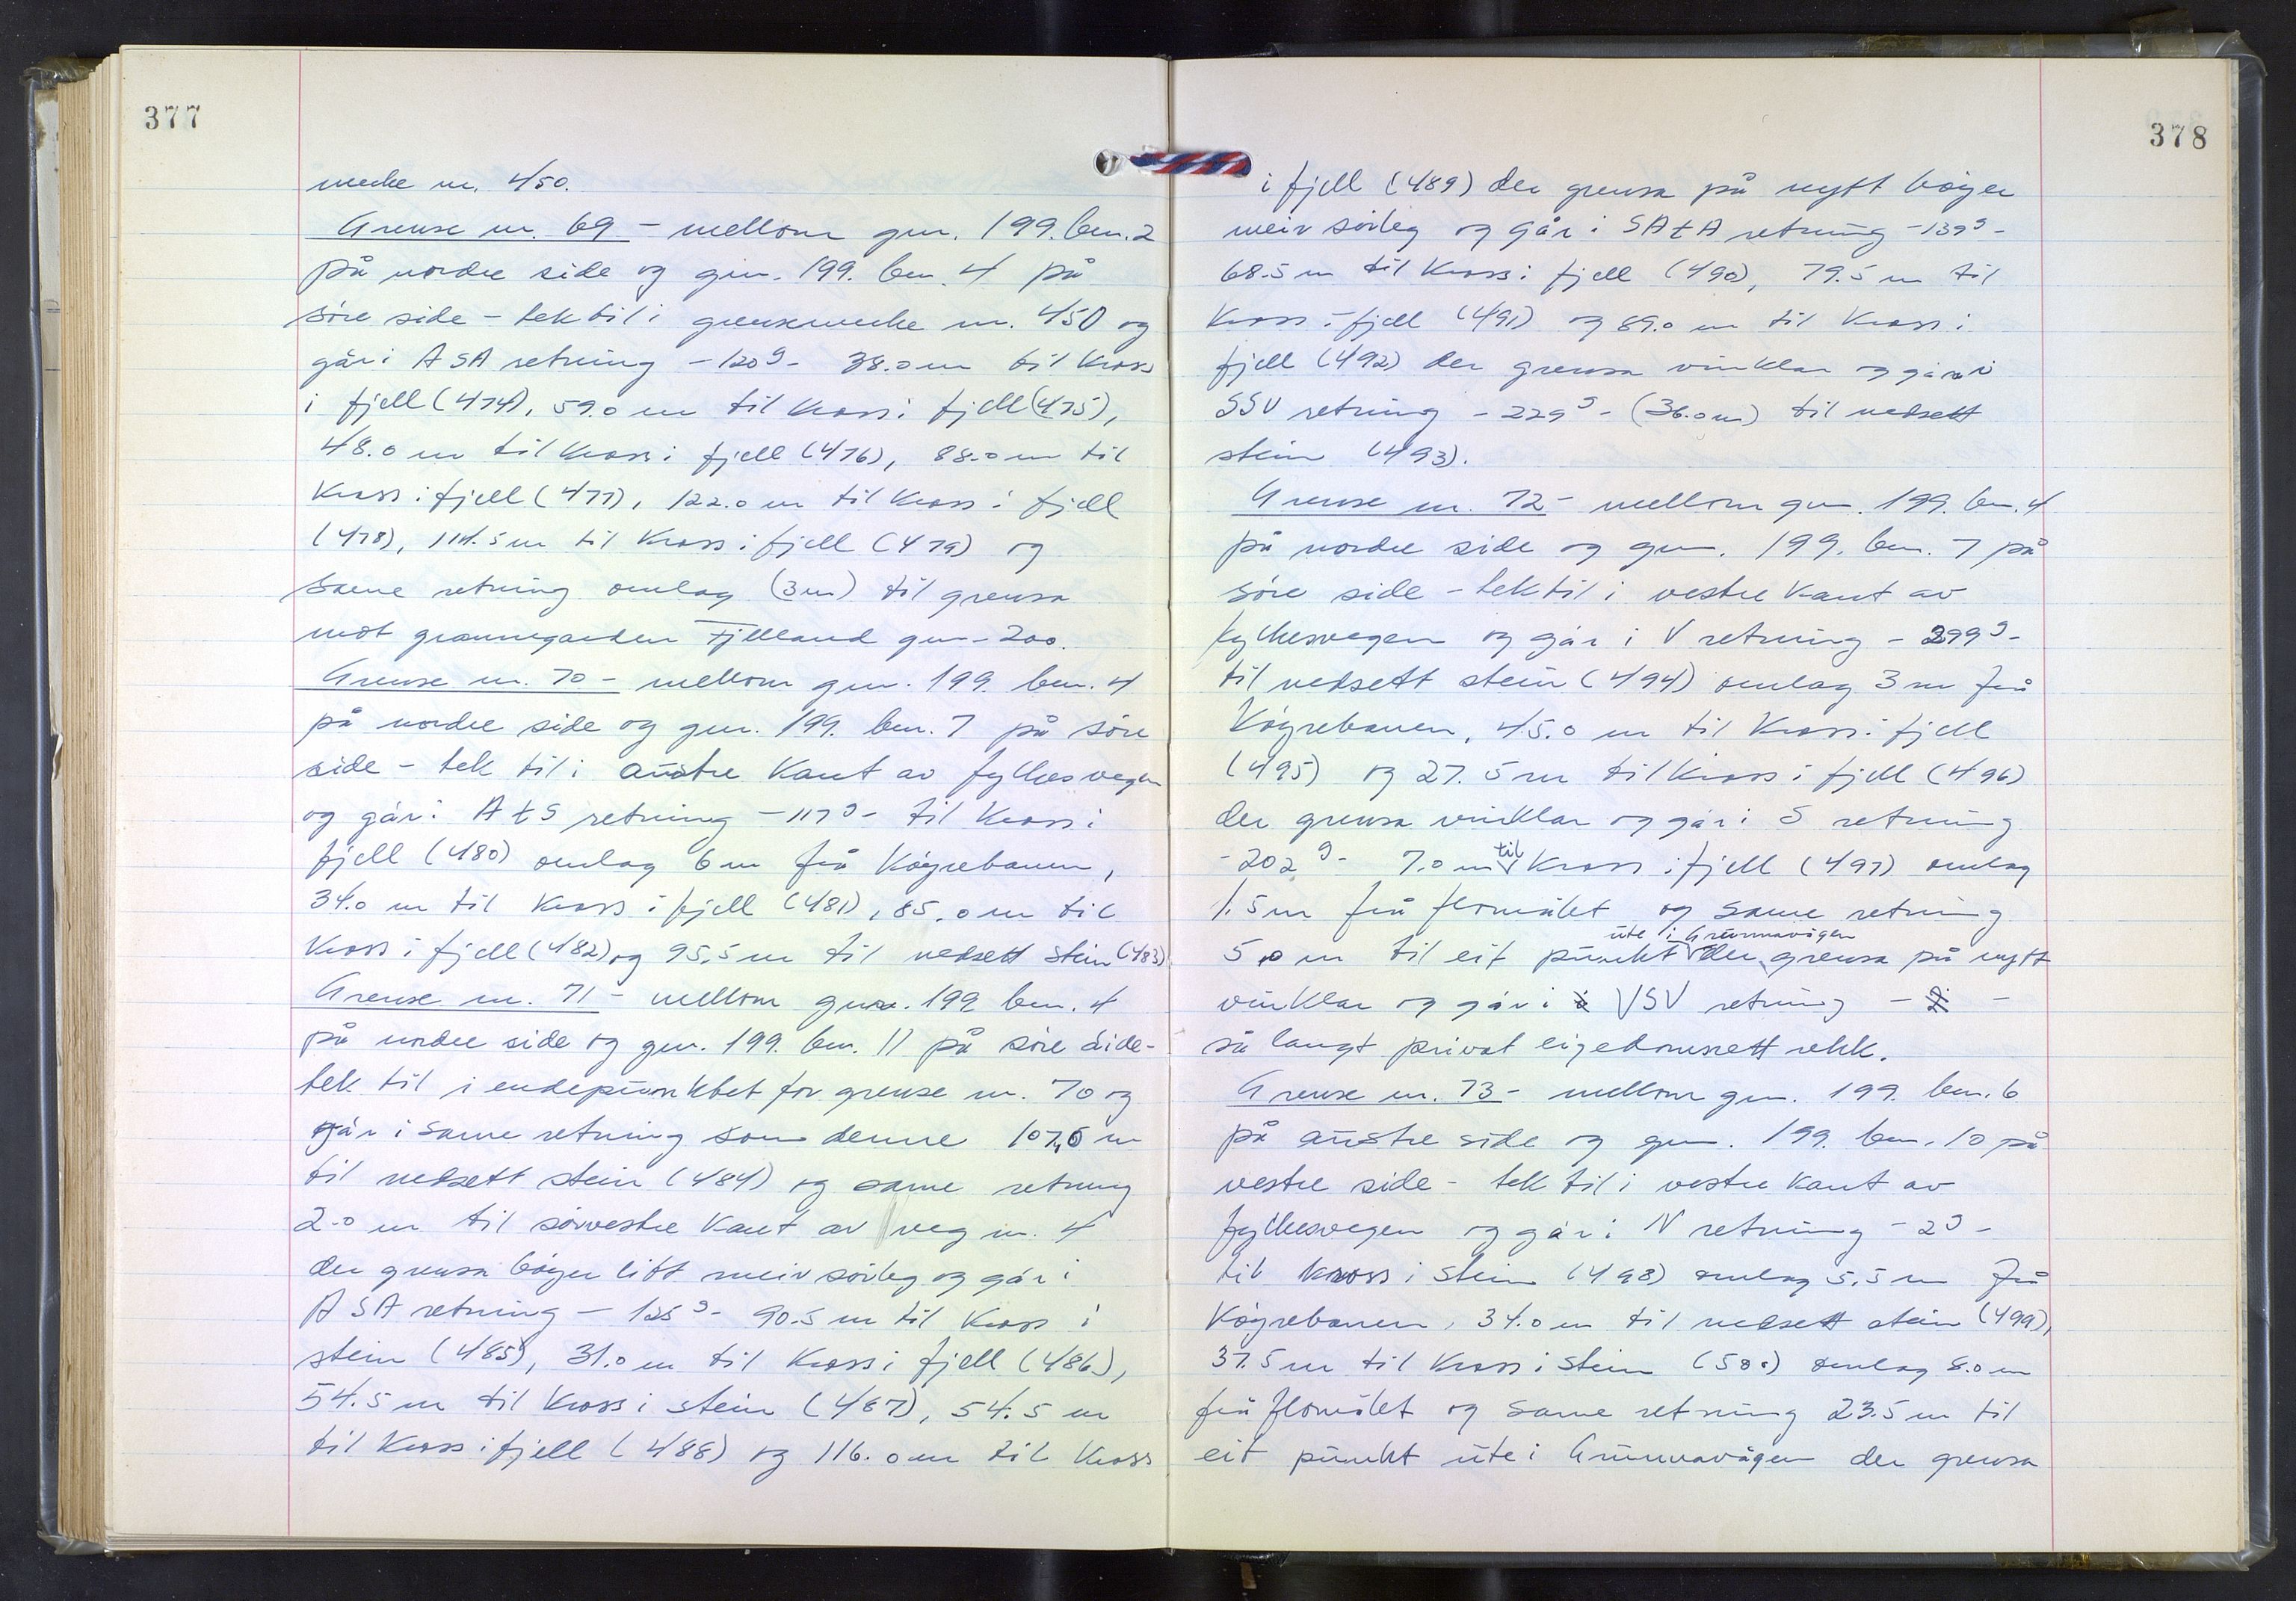 377
merke nr. 450.
Grense nr. 69 - mellom gnr. 199. bnr. 2
på nordre side og gnr. 199. bnr. 4 på
søre side - tek til i grensemerke nr. 450 og
går i ASA retning - 120 g - 38.0 m til kross
i fjell (474), 59.0 m til kross i fjell (475),
48.0 m til kross i fjell (476), 88.0 m til
kross i fjell (477), 122.0 m til kross i fjell
(478), 114.5 m til kross i fjell (479) og
same retning omlag (3 m) til grensa
mot grannegarden Fjelland gnr. 200.
Grense nr. 70 - mellom gnr. 199. bnr. 4
på nordre side og gnr. 199. bnr. 7 på søre
side - tek til i austre kant av fylkesvegen
og går i AtS retning - 117 g - til kross i
fjell (480) omlag 6 m frå køyrebanen,
34.0 m til kross i fjell (481), 85.0 m til
kross i fjell (482) og 95.5 m til nedsett stein (483)
Grense nr. 71 - mellom gnr. 199 bnr. 4
på nordre side og gnr. 199. bnr. 11 på søre side -
tek til i endepunktet for grense nr. 70 og
går i same retning som denne 107.0 m
til nedsett stein (484) og same retning
2.0 m til sørvestre kant av veg nr. 4
der grensa bøyer litt meir sørleg og går i
ASA retning - 125 g - 90.5 m til kross i
stein (485), 31.0 m til kross i fjell (486),
54.5 m til kross i stein (487), 54.5 m
til kross i fjell (488) og 116.0 m til kross
378
i fjell (489) der grensa på nytt bøyer
meir sørleg og går i SAtA retning - 139 g -
68.5 m til kross i fjell (490), 79.5 m til
kross i fjell (491) og 89.0 m til kross i
fjell (492) der grensa vinklar og går i
SSV retning - 229 g - (36.0 m) til nedsett
stein (493).
Grense nr. 72 - mellom gnr. 199. bnr. 4
på nordre side og gnr. 199. bnr. 7 på
søre side - tek til i vestre kant av
fylkesvegen og går i V retning - 299 g -
til nedsett stein (494) omlag 3 m frå
køyrebanen, 45.0 m til kross i fjell
(495) og 27.5 m til kross i fjell (496)
der grensa vinklar og går i S retning
- 202 g - 7.0 m til kross i fjell (497) omlag
1.5 m frå flomålet og same retning
5.0 m til eit punkt ute i Grunnavågen der grensa på nytt
vinklar og går i VSV retning - -
så langt privat eigedomsrett rekk.
Grense nr. 73 - mellom gnr. 199. bnr. 6
på austre side og gnr. 199. bnr. 10 på
vestre side - tek til i vestre kant av
fylkesvegen og går i N retning - 2 g -
til kross i stein (498) omlag 5.5 m frå
køyrebanen, 34.0 m til nedsett stein (499),
37.5 m til kross i stein (500) omlag 8.0 m
frå flomålet og same retning 23.5 m til
eit punkt ute i Grunnavågen der grensa